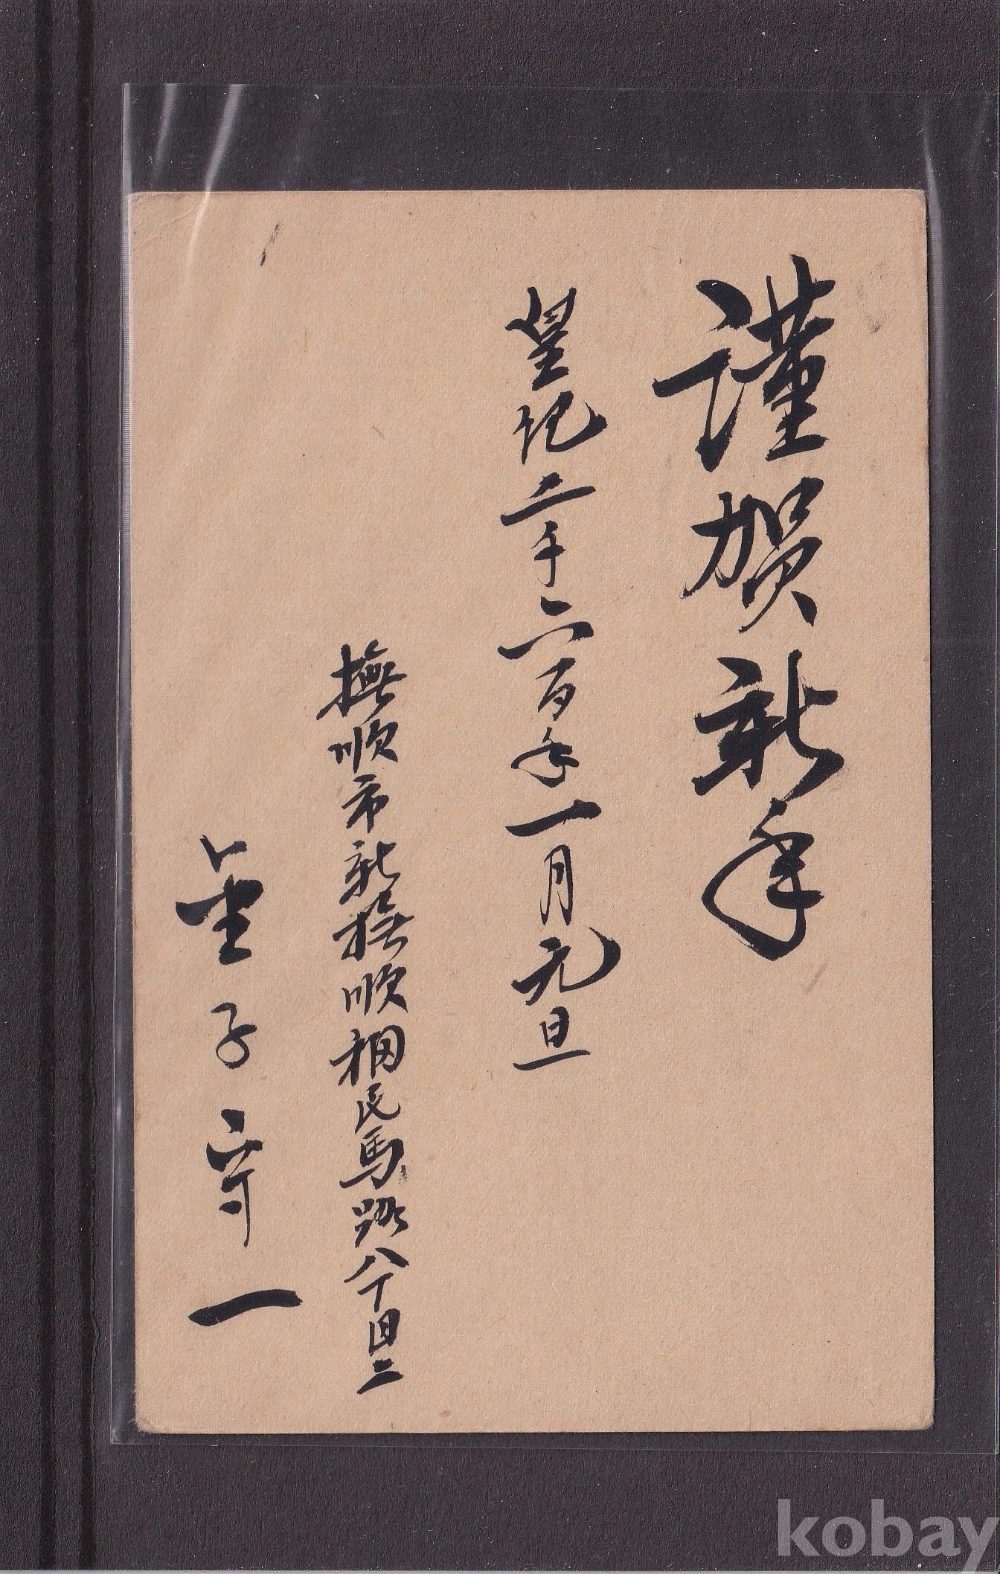 謹賀新年
皇紀二千六百年一月元旦
撫順市新撫順相民馬路八丁目二
金子守一
kobay